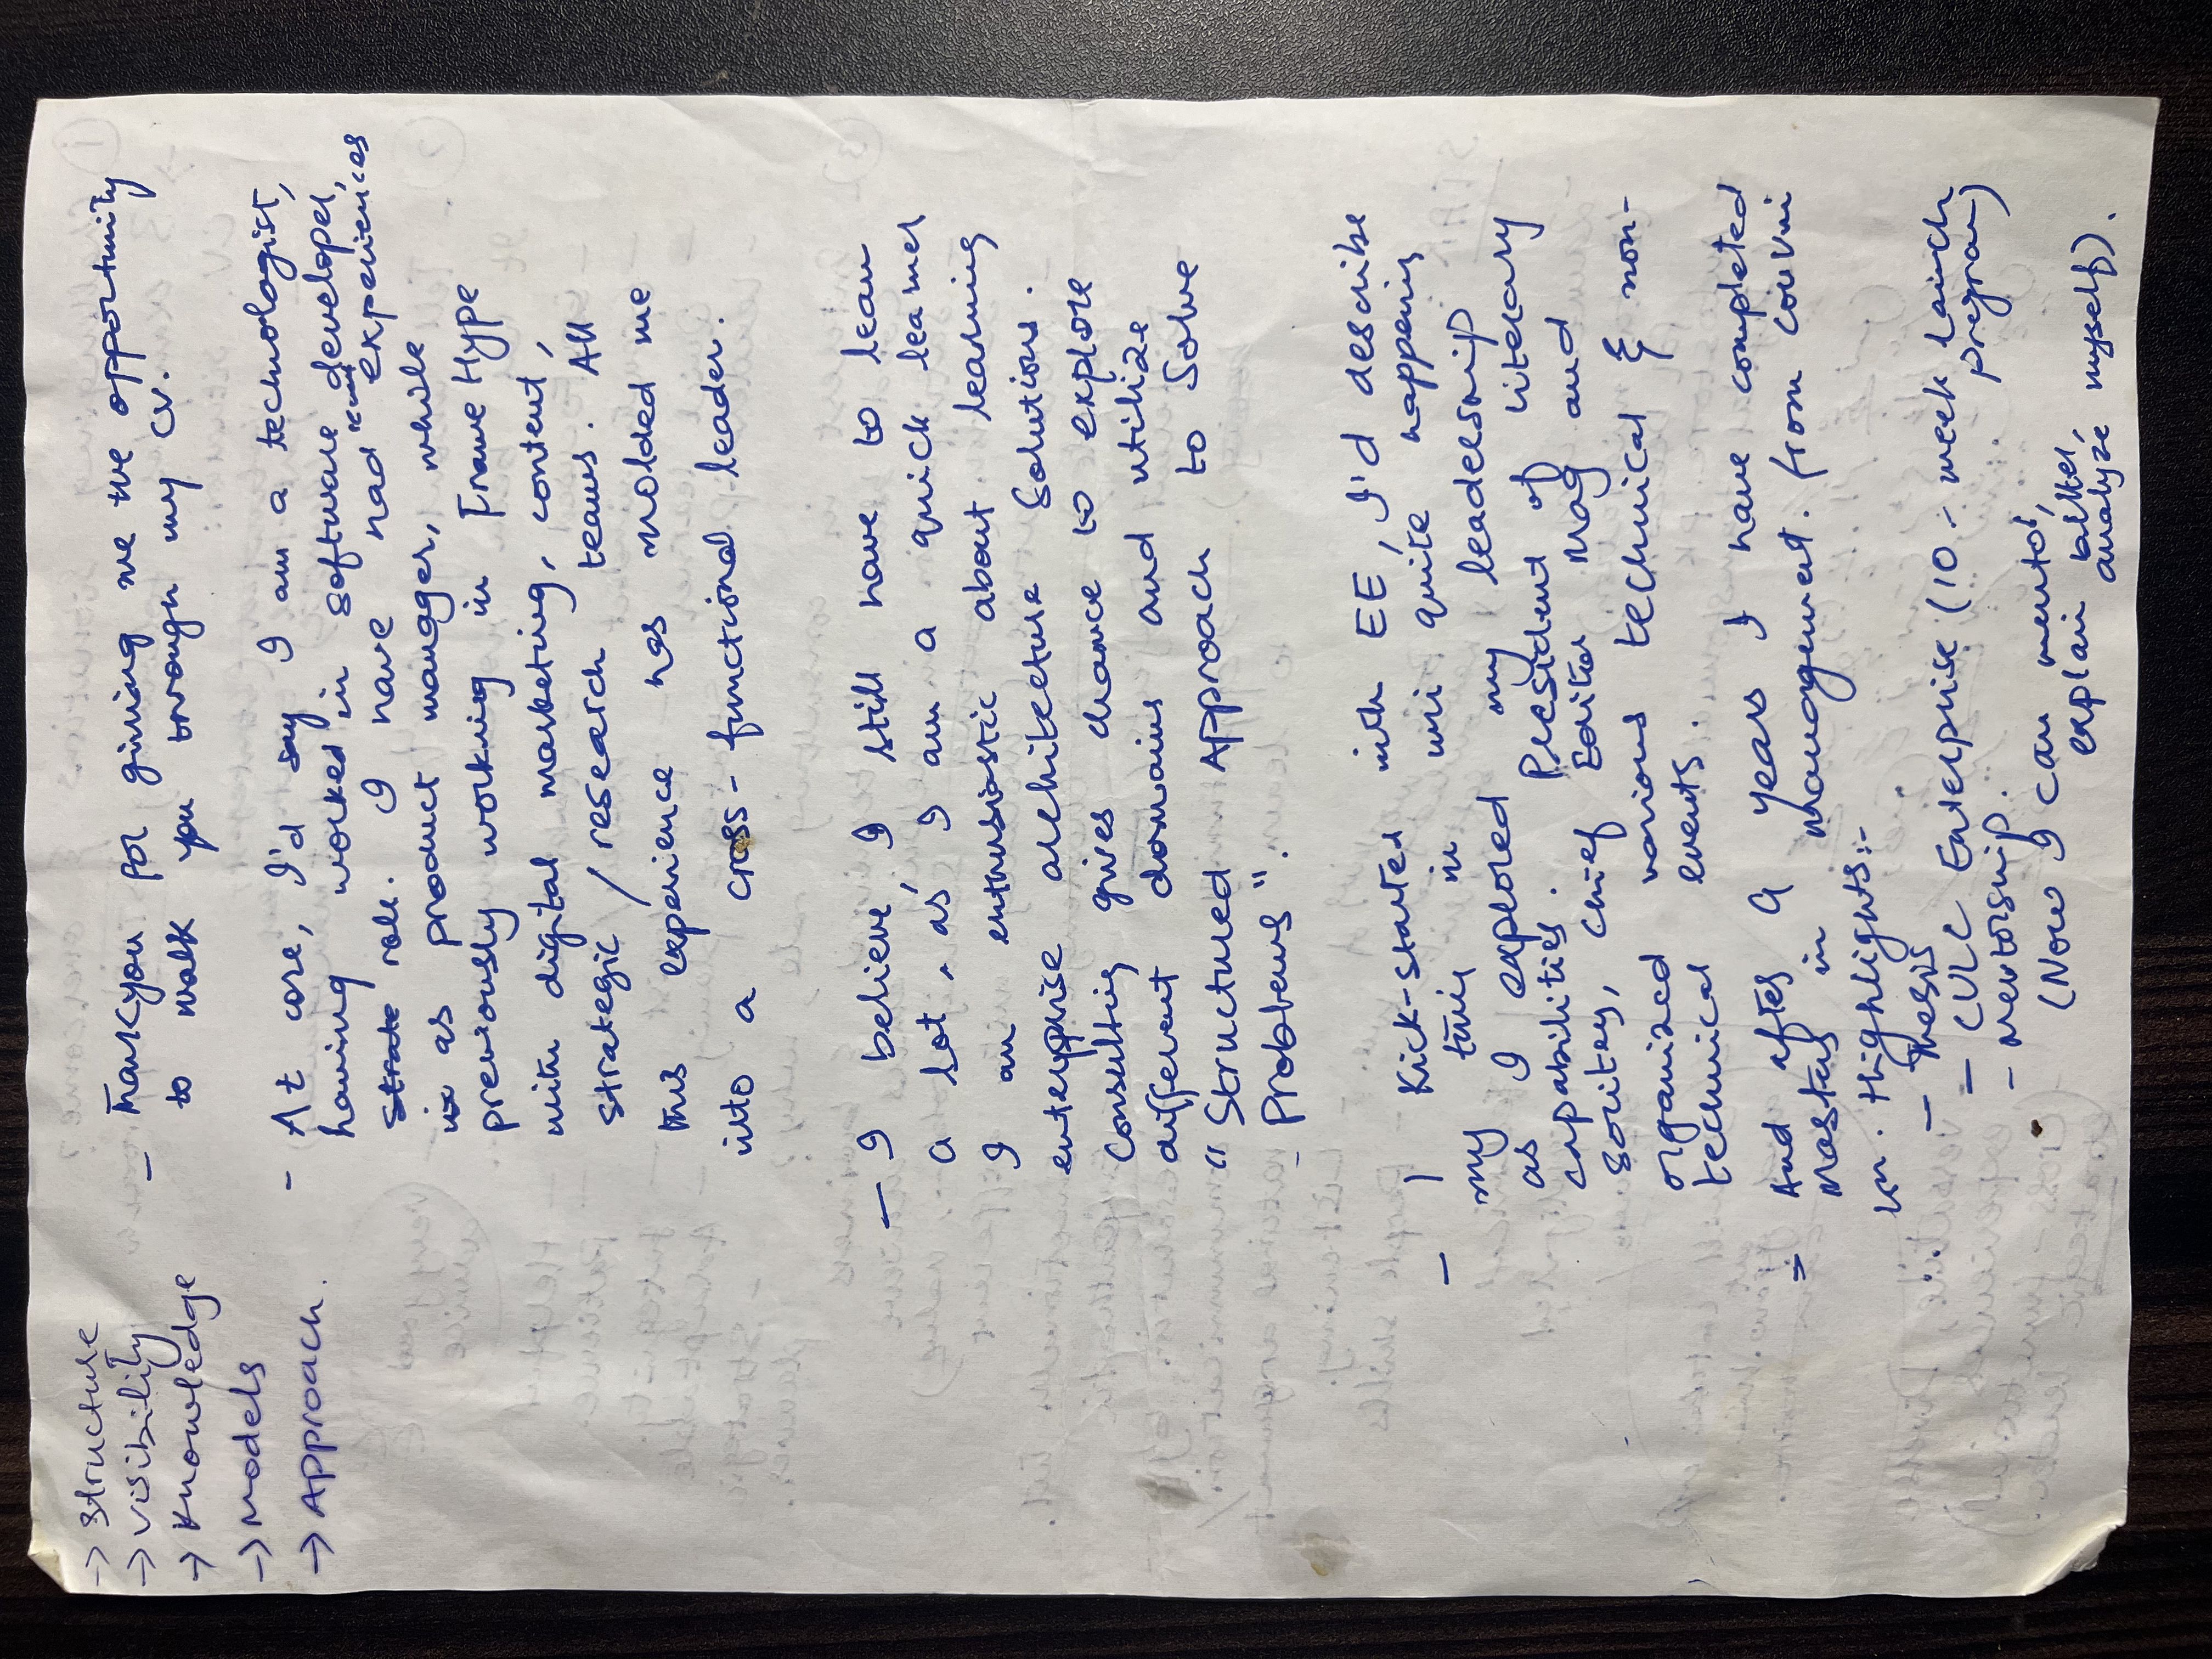 → Structure
→ Visibility
→ Knowledge
→ Models
→ Approach.
- Thankyou for giving me the opportunity
to walk you through my CV.
- At core, I'd say I am a technologist,
having worked in software developer,
role. I have had experiences
as product manager, while
previously working in Frame Hype
with digital marketing, content,
strategic / research teams. All
this experience has molded me
into a cross-functional leader.
- I believe, I still have to lean
a lot, as, I am a quick learner
I an enthusiastic about learning
enterprise architecture solutions.
Consulting gives chance to explore
different domains and utilize
"Structured Approach to Solve
- Problems".
- I Kick-started with EE, I'd describe
my time in uni quite happening
as I explored my leadership
capabilities. President of literary
society, Chief Editor Mag and
organized various technical & non-
technical events.
= And after 9 years I have completed
Masters in management. from
Highlights:-
- Thesis
= CULC Enterprise (10 - week Lainch
program)
- Mentorship.
(Now I can mentor,
explain better,
analyze myself).